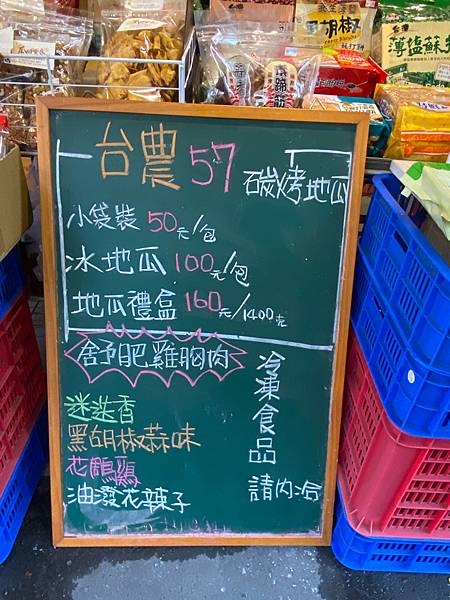 台灣
黑胡椒
台灣
薄塩蘇打
台農57
碳烤地瓜
小袋裝 50元/包
冰地瓜 100元/包
地瓜禮盒 160元/1400克
舒肥雞胸肉
迷迭香
黑胡椒蒜味
花雕雞
油潑花辣子
冷凍食品
請內洽